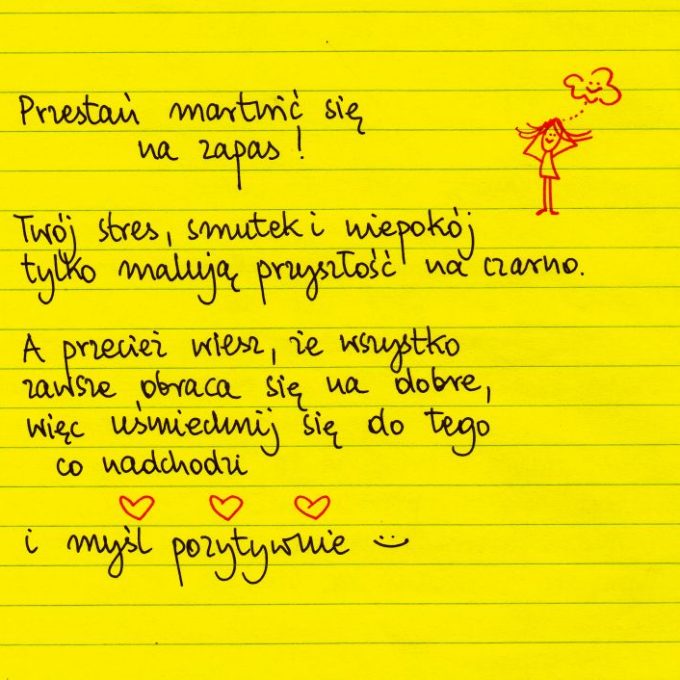 Przestań martwić się
na zapas!
Twój stres, smutek i niepokój
tylko malują przyszłość na czarno.
A przecież wiesz, że wszystko
zawsze obraca się na dobre,
więc uśmiechnij się do tego
co nadchodzi
i myśl pozytywnie